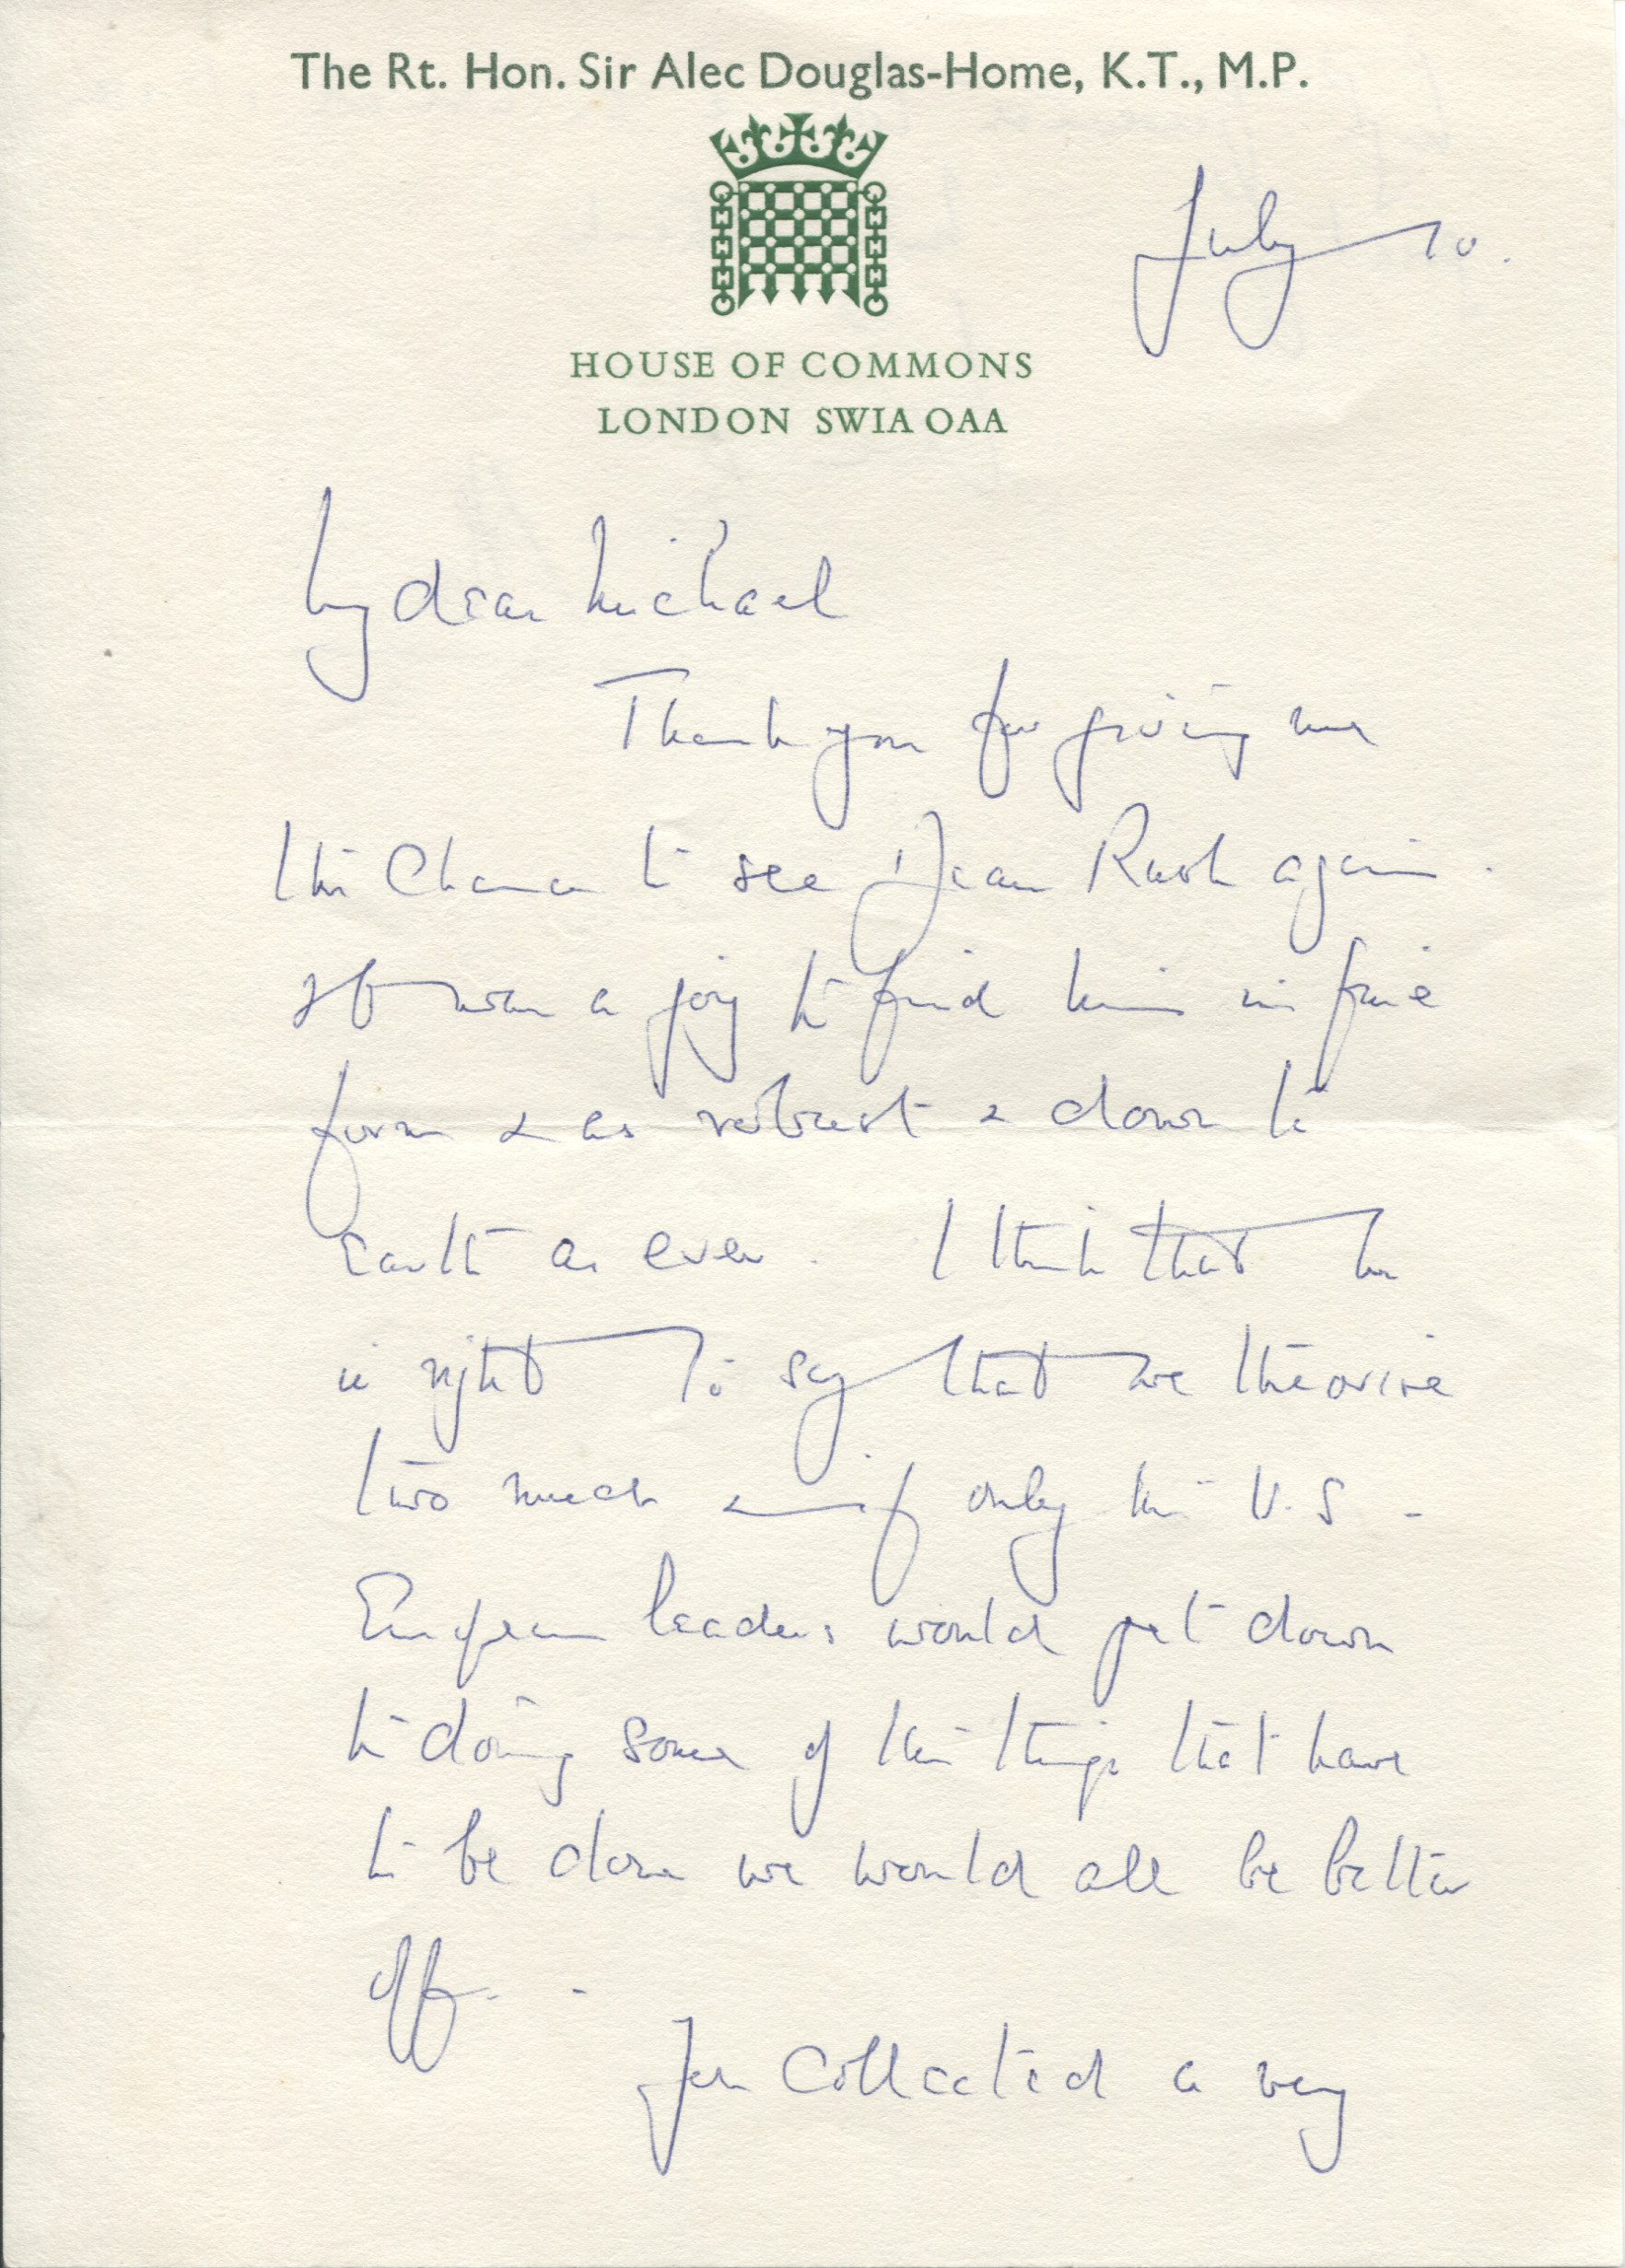 The Rt. Hon. Sir Alec Douglas-Home, K.T., M.P.
July 10.
HOUSE OF COMMONS
LONDON SW1A 0AA
My dear Michael
Thank you for giving me
the chance to see Dean Rusk again.
It was a joy to find him in fine
form & as robust & down to
earth as ever. I think that he
is right to say that we theorise
two much & if only the U.S -
European leaders would get down
to doing some of the things that have
to be done we would all be better
off.
You collected a very